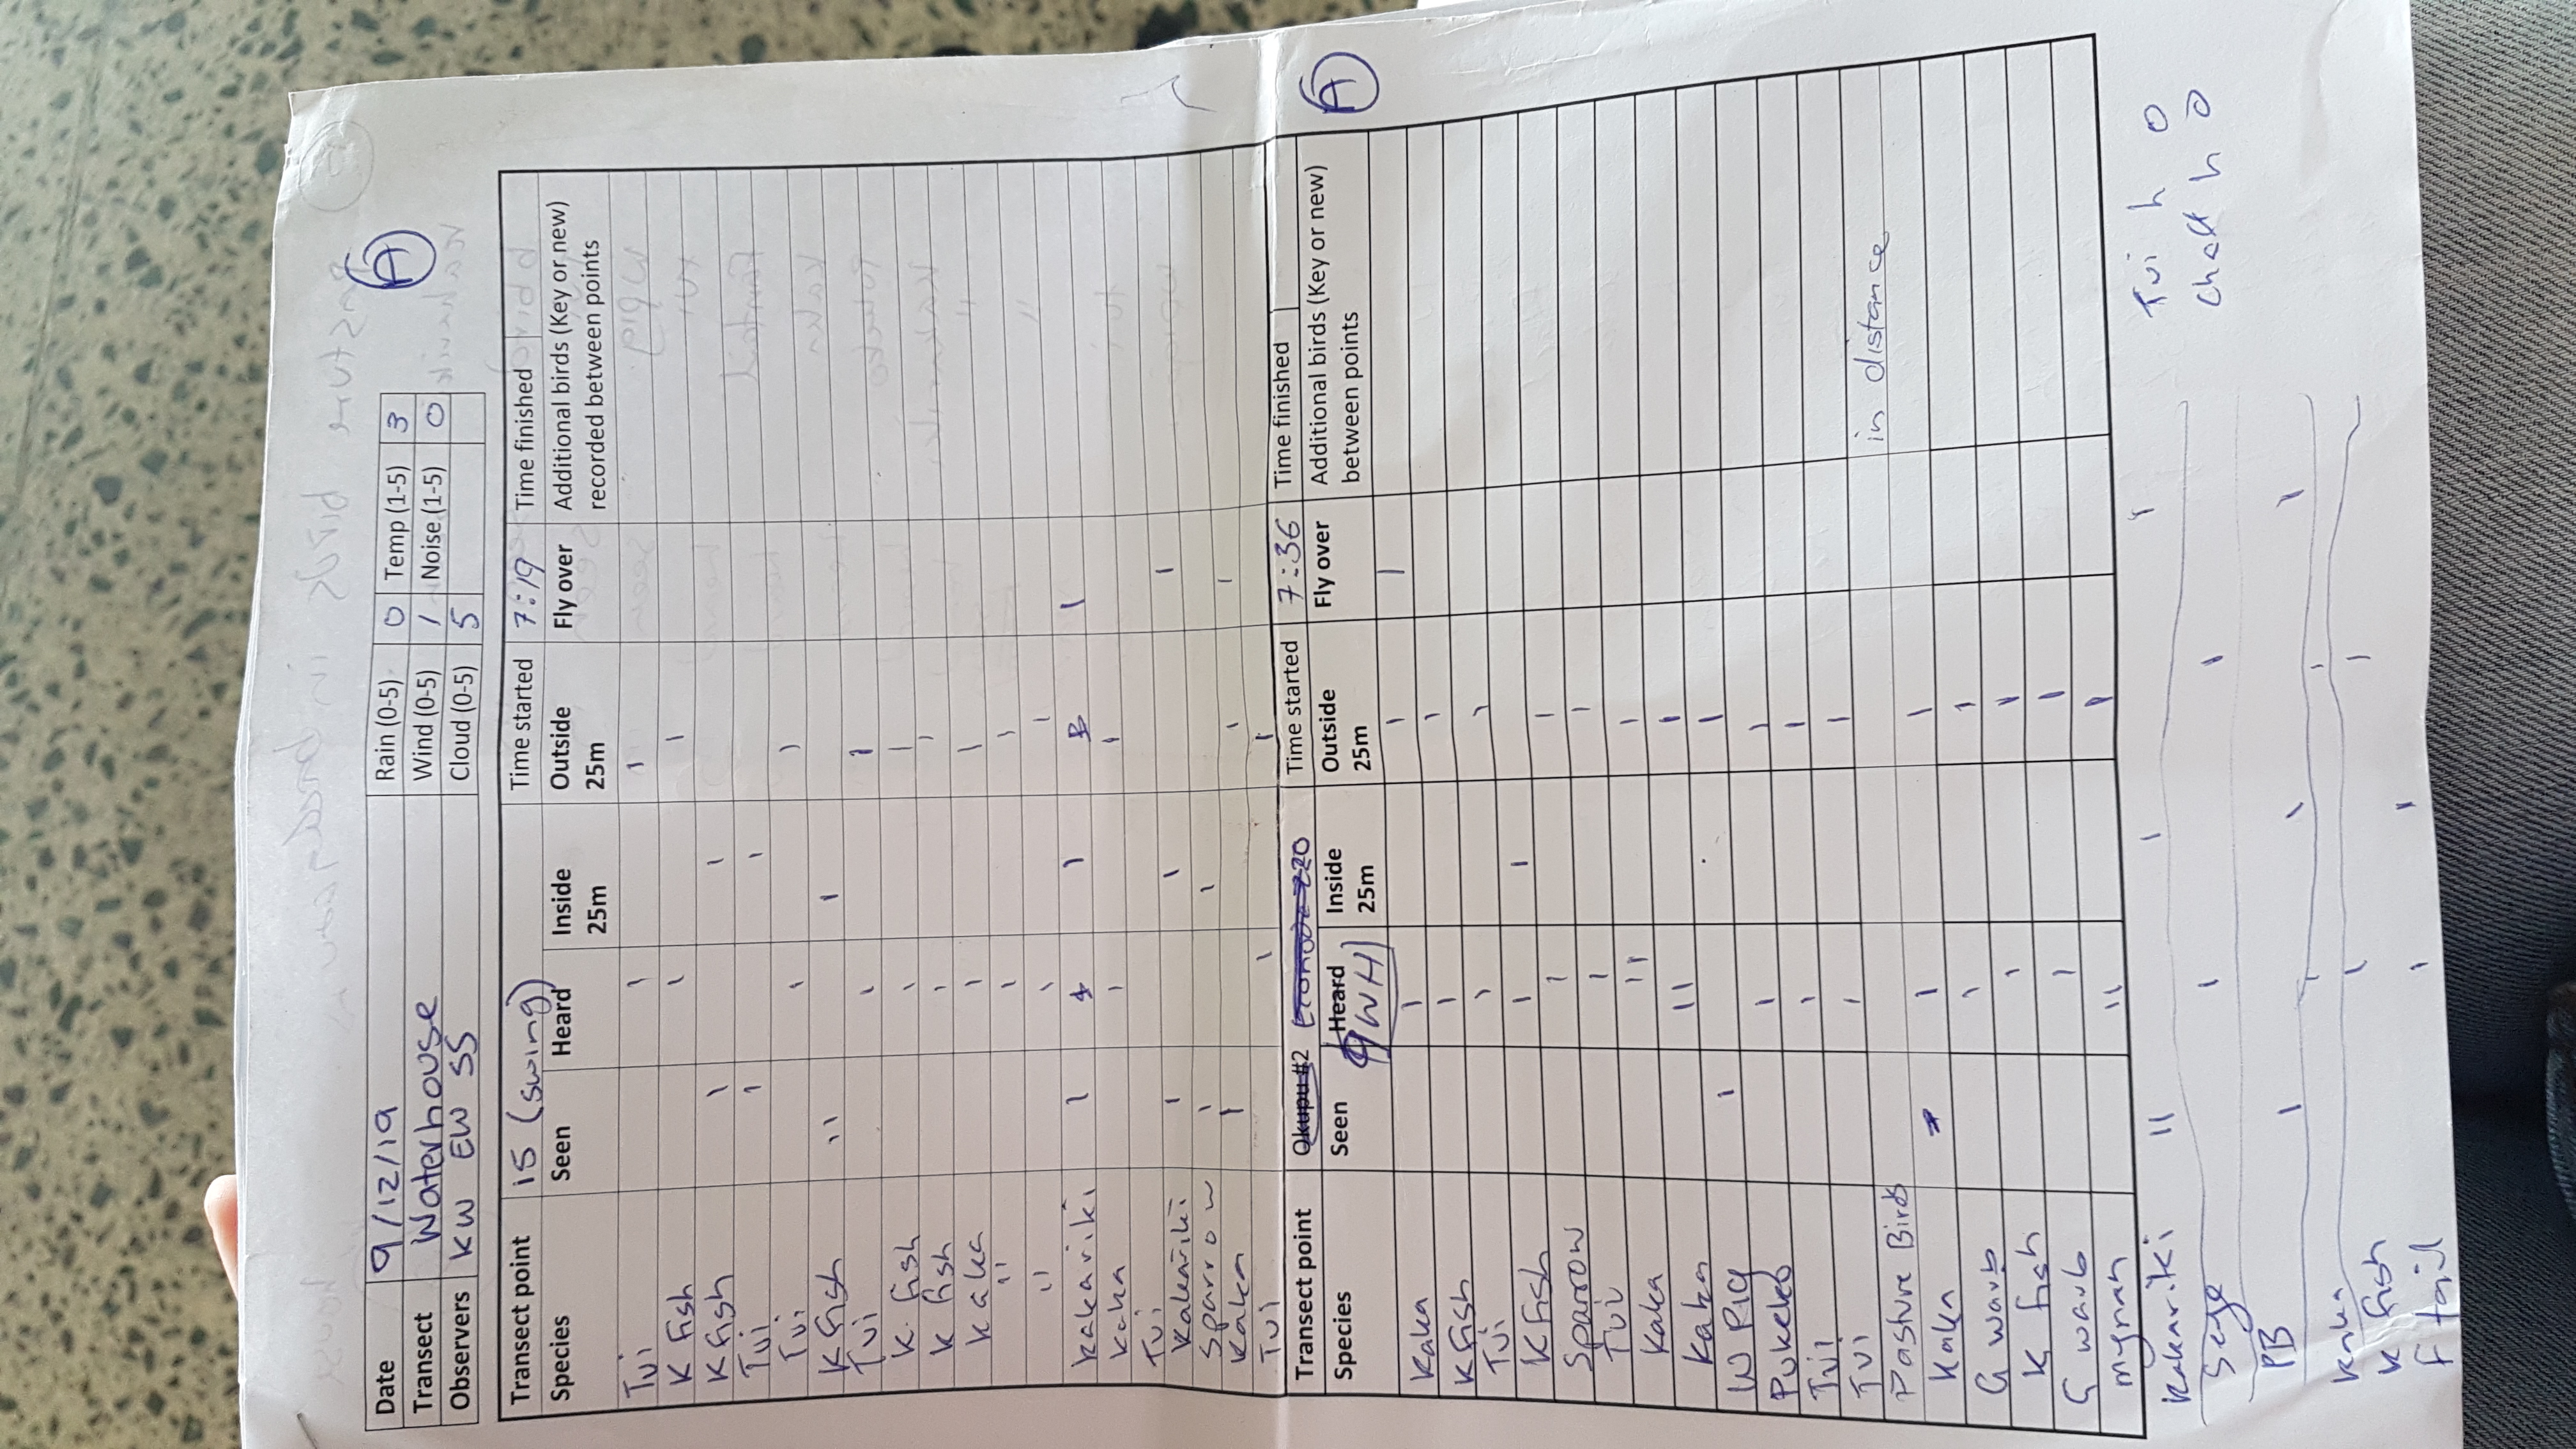 Date 9/12/19 Rain (0-5) 0 Temp (1-5) 3
Transect Waterhouse Wind (0-5) 1 Noise (1-5) 0
Observers KW EW SS Cloud (0-5) 5
A
Transect point 15 (swing) Time started 7:19 Time finished
Species Seen Heard Inside 25m Outside 25m Fly over Additional birds (Key or new) recorded between points
Tui 1 1
K fish 1 1
K fish 1 1
Tui 1 1
Tui 1 1
K fish 11 1
Tui 1 1
K. fish 1 1
K fish 1 1
Kaka 1 1
" 1 1
" 1 1
Kakariki 1 1 1
Kaka 1 1
Tui
Kakariki 1 1 1
Sparrow 1 1
Kaka 1 1 1
Tui 1 1
Transect point Okupu #2 220 Time started 7:36 Time finished
Species Seen Heard Inside 25m Outside 25m Fly over Additional birds (Key or new) between points
(WH)
A
Kaka 1 1 1
K fish 1 1
Tui 1 1
K fish 1 1
Sparrow 1 1
Tui 1 1
Kaka 11 1
Kaka 11 1
W Pig 1 1
Pukeko 1 1
Tui 1 1
Tui 1 1
Pasture Birds in distance
Kaka 1 1
G warb 1 1
K fish 1 1
G warb 1 1
mynah 11 1
Kakariki 11 1 1
Tui h 0
Chaff h 0
1 1
PB 1 1 1
Kaka 1 1
K fish 1 1
F tail 1 1